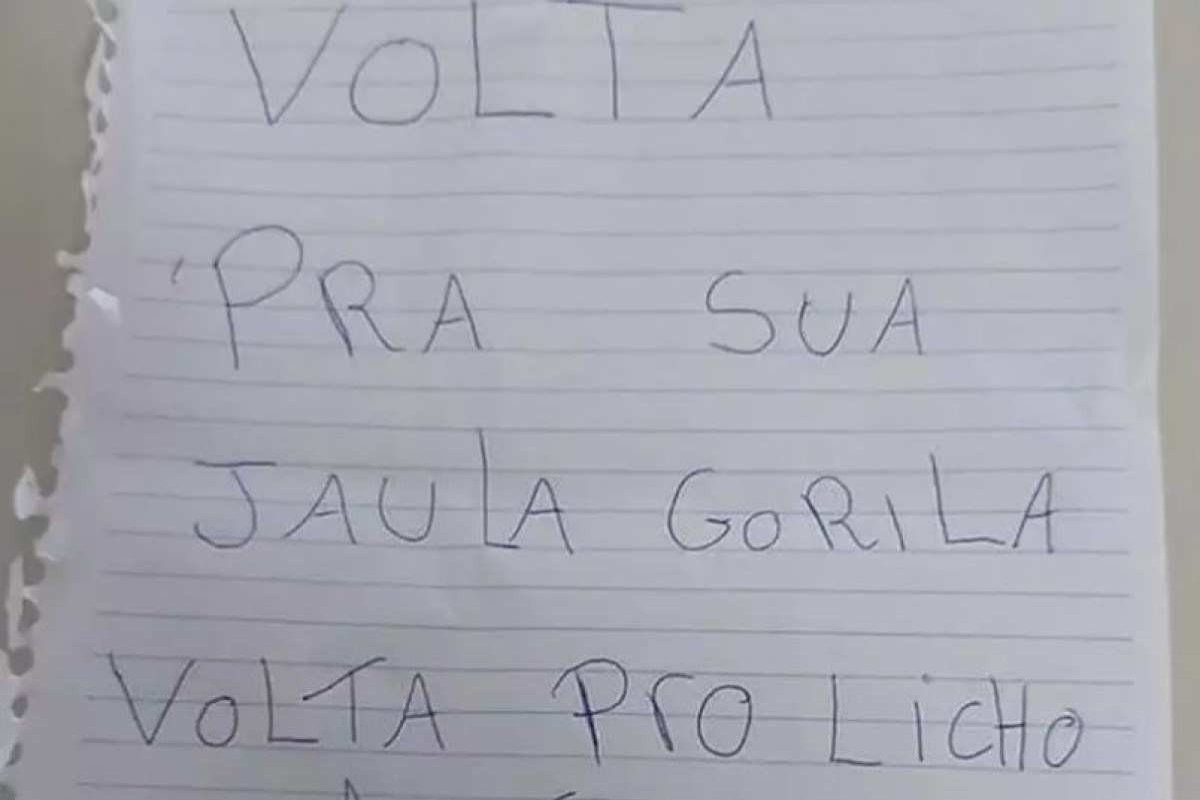 VOLTA
PRA SUA
JAULA GORILA
VOLTA PrO LiCHO